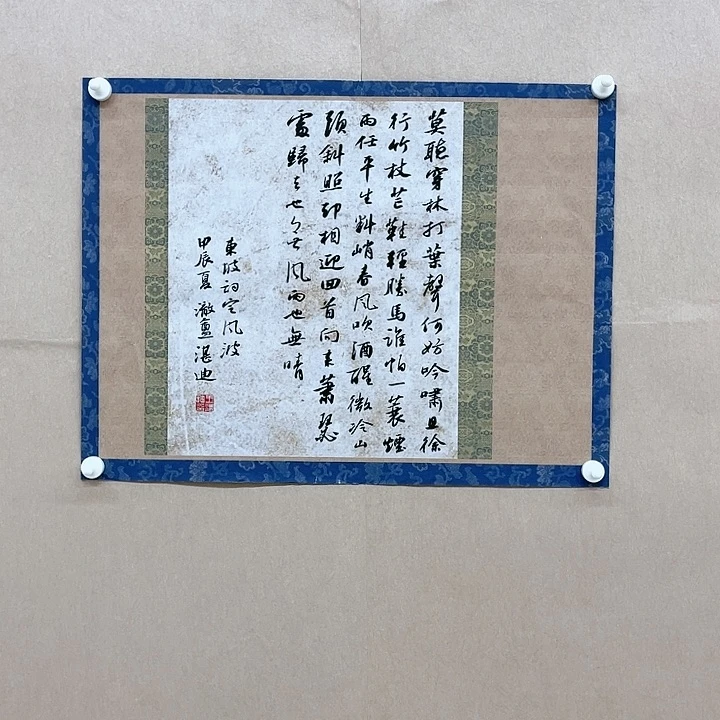 莫聽穿林打葉聲何妨吟嘯且徐
行竹杖芒鞋輕勝馬誰怕一蓑煙
雨任平生料峭春風吹酒醒微冷山
頭斜照却相迎回首向來蕭瑟
處歸去也無風雨也無晴
東坡詞定風波
甲辰夏 澈盦湛迪